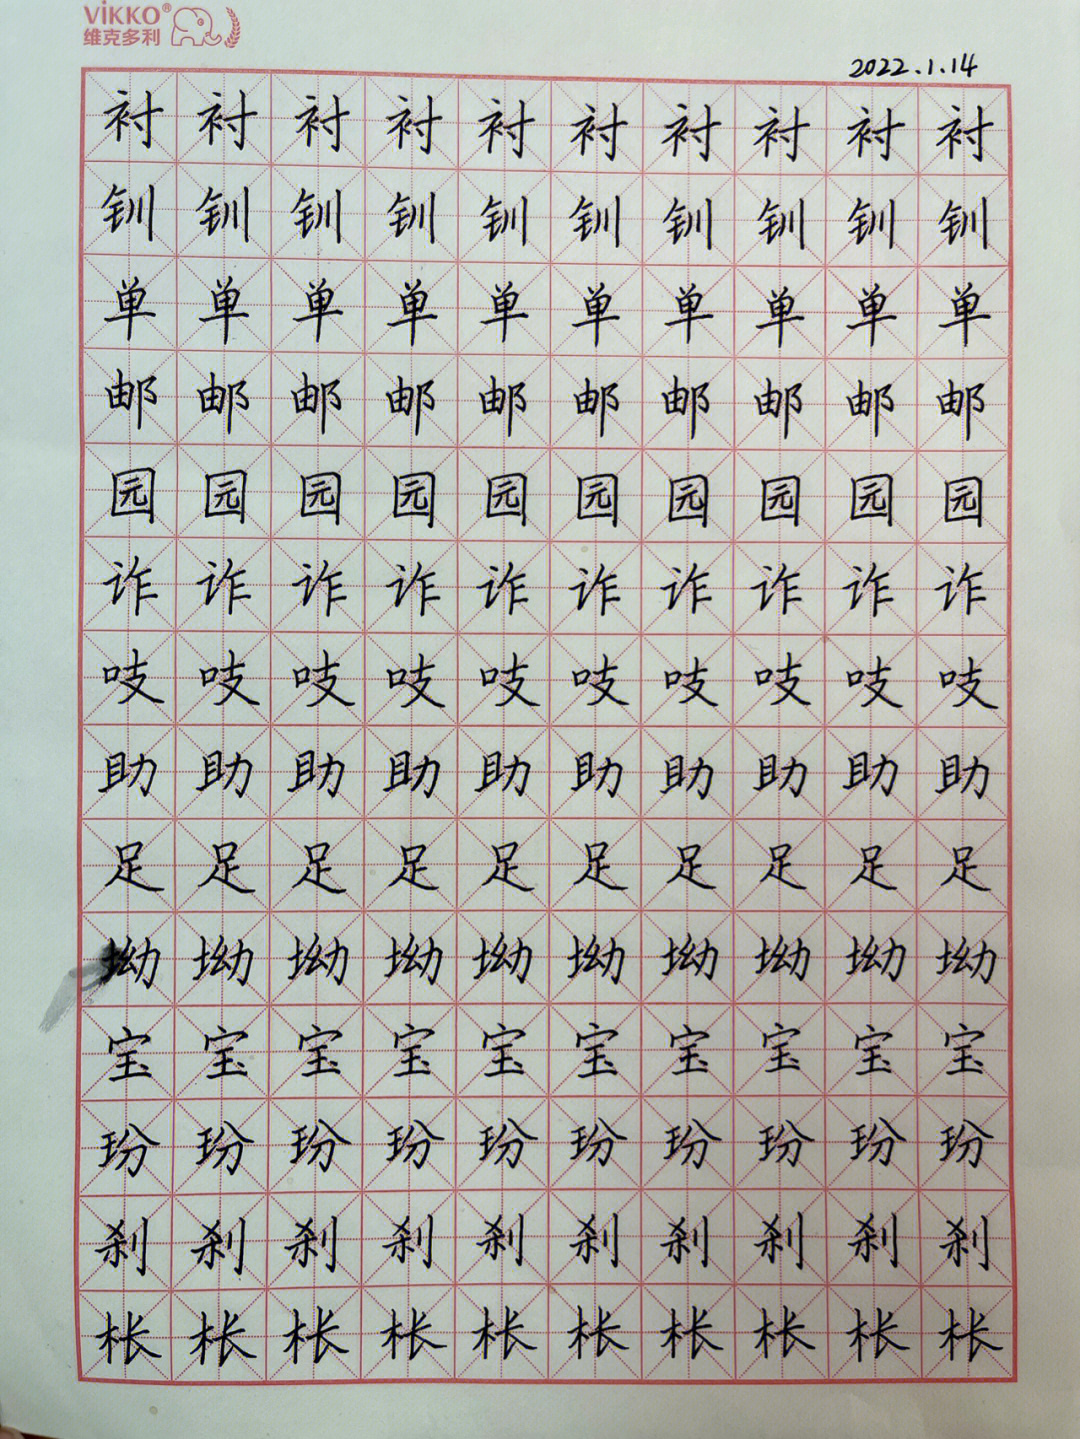 VIKKO®
维克多利
2022.1.14
衬衬衬衬衬衬衬衬衬衬
钏钏钏钏钏钏钏钏钏钏
单单单单单单单单单单
邮邮邮邮邮邮邮邮邮邮
园园园园园园园园园园
诈诈诈诈诈诈诈诈诈诈
吱吱吱吱吱吱吱吱吱吱
助助助助助助助助助助
足足足足足足足足足足
坳坳坳坳坳坳坳坳坳坳
宝宝宝宝宝宝宝宝宝宝
玢玢玢玢玢玢玢玢玢玢
刹刹刹刹刹刹刹刹刹刹
枨枨枨枨枨枨枨枨枨枨